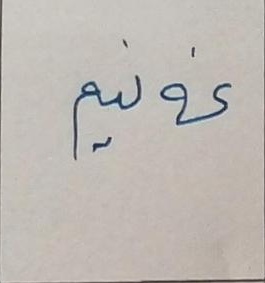 غونيم